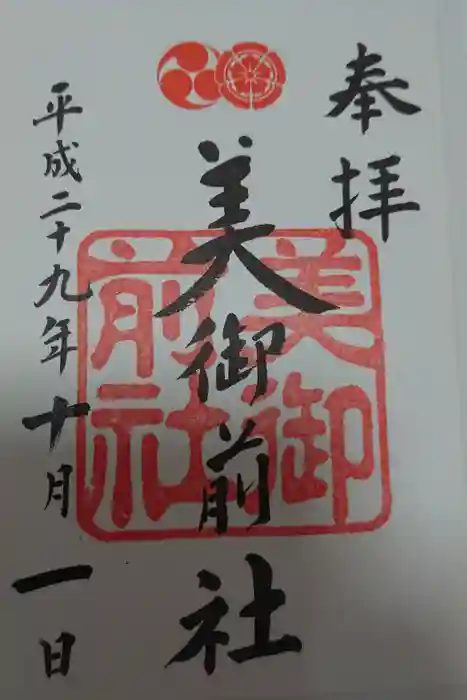 奉拝
美御前社
美御前社
平成二十九年十月一日